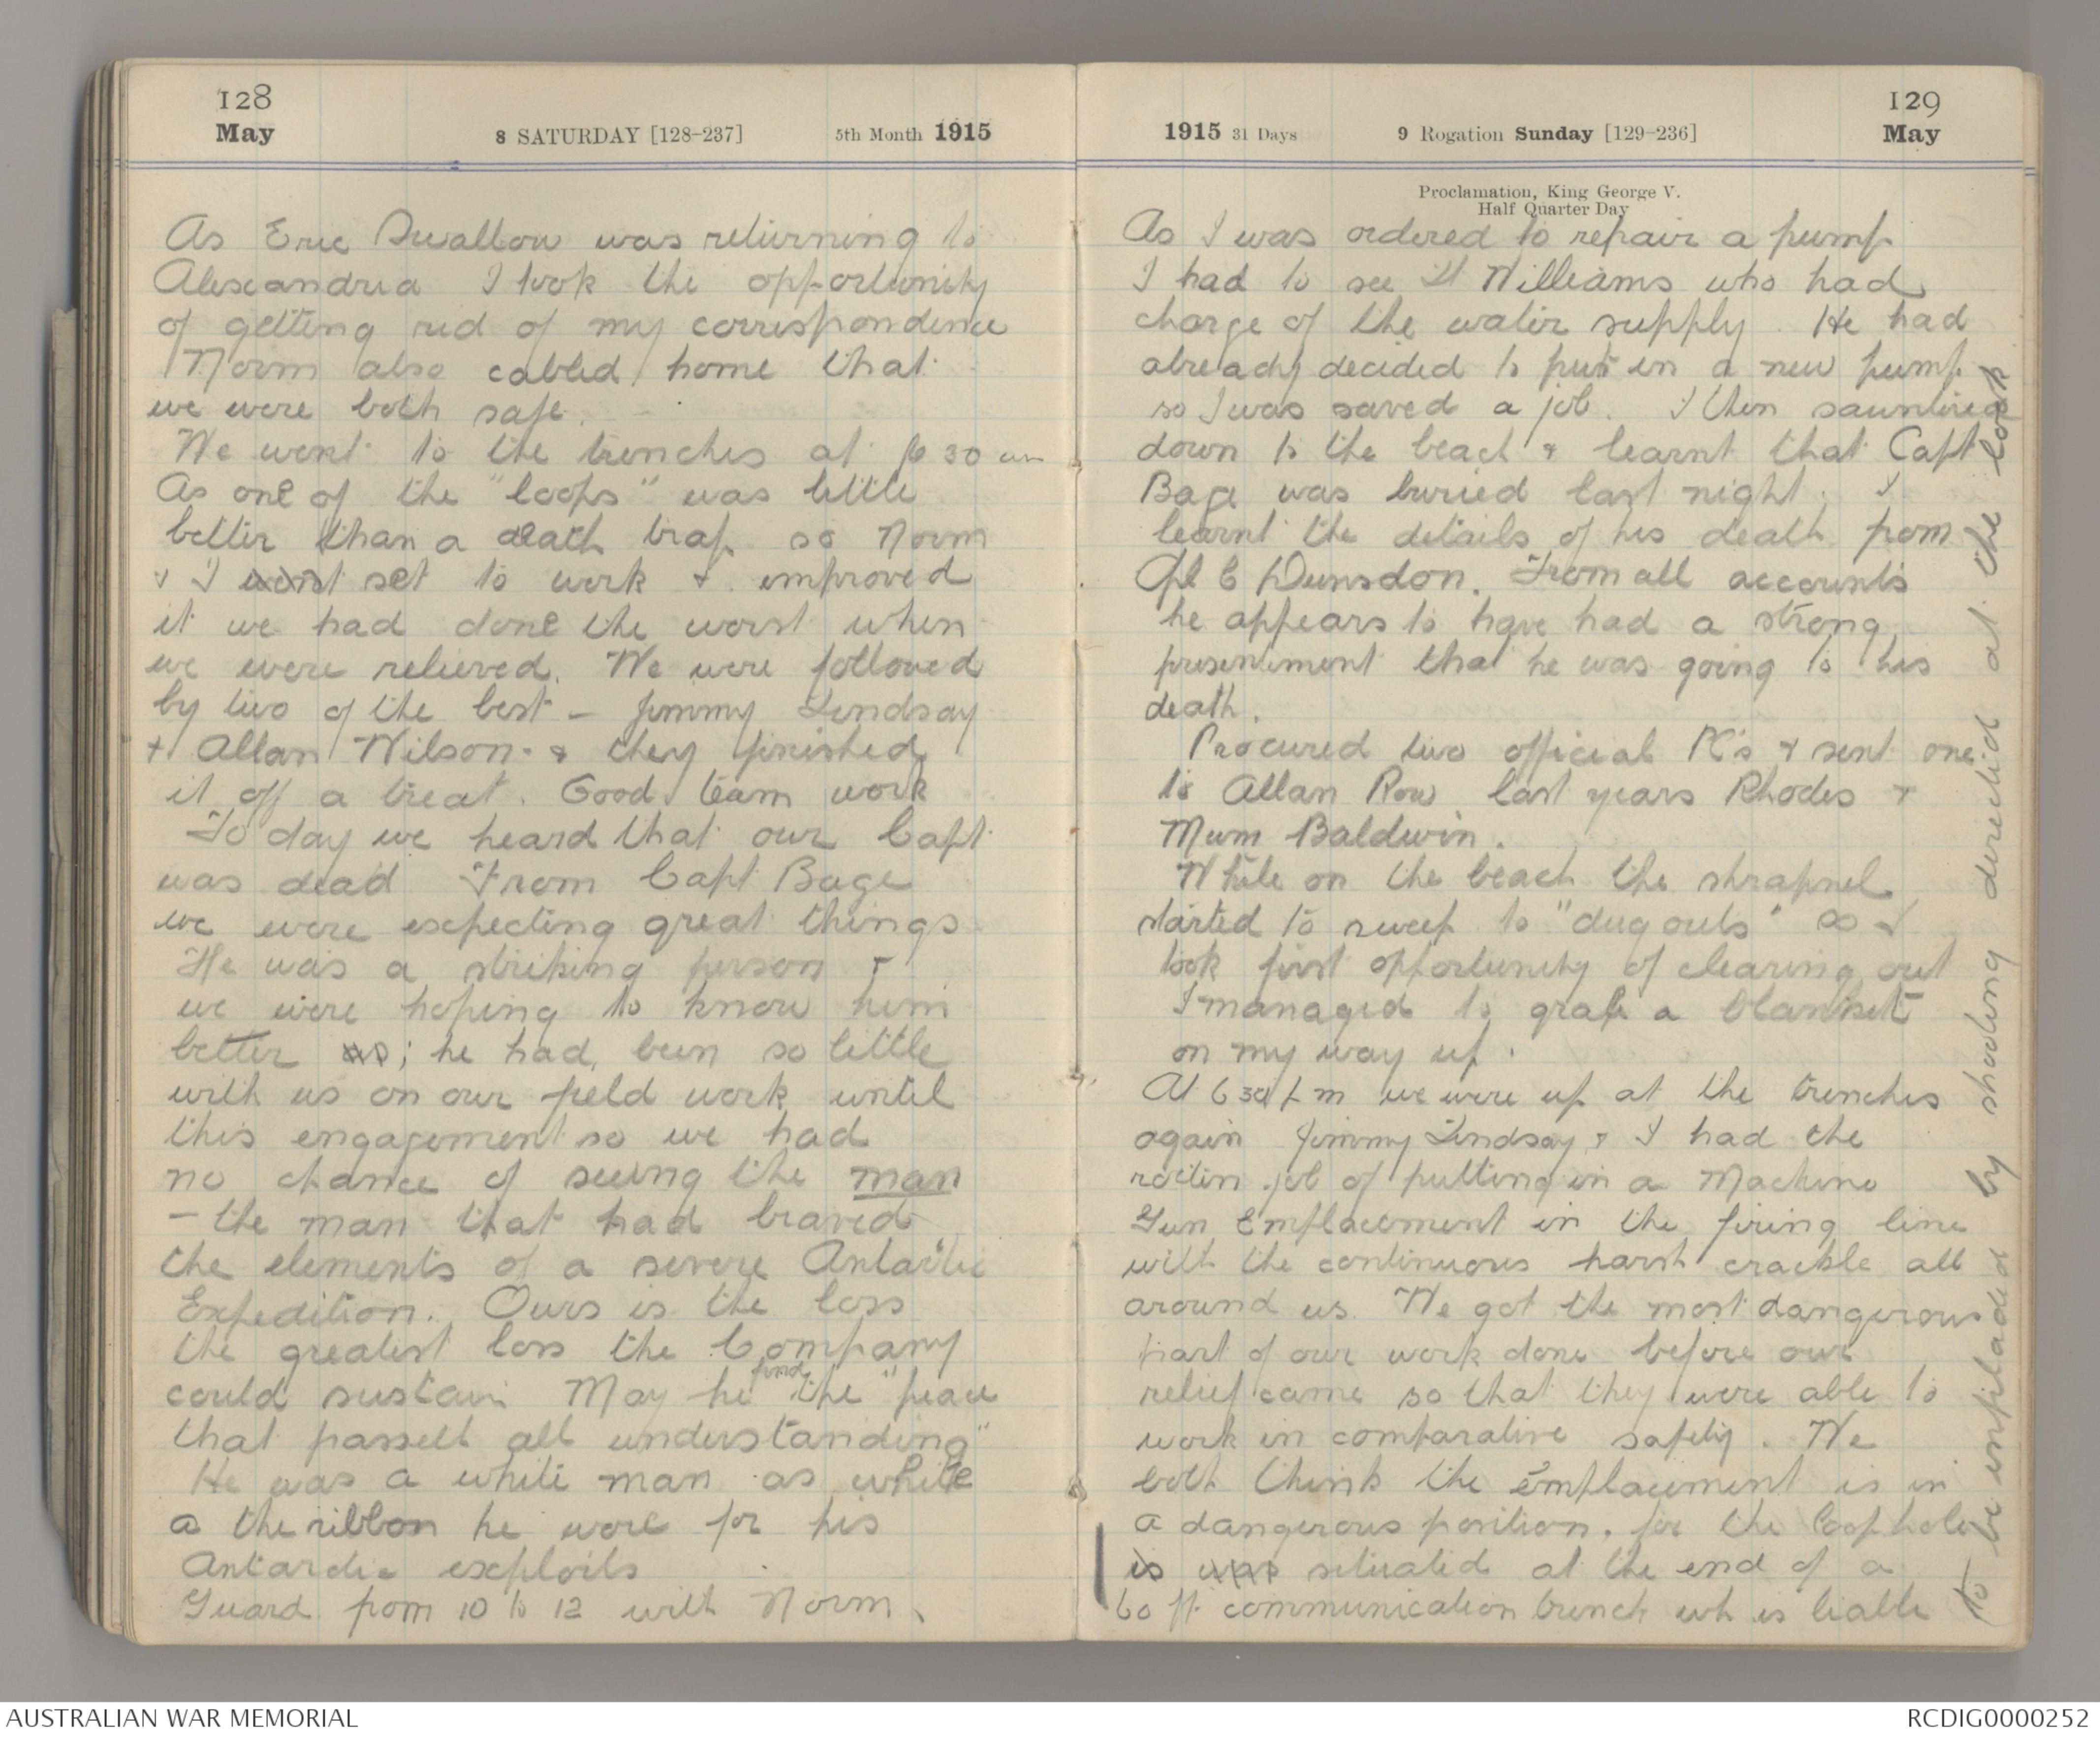 128
May
8 SATURDAY [128-237]
5th Month 1915
As Eric Swallow was returning to
Alexandria I took the opportunity
of getting rid of my correspondence
Norm also cabled home that
we were both safe.
We went to the trenches at 6 30 am
As one of the "loops" was little
better than a death trap so Norm
& I went set to work & improved
it we had done the worst when
we were relieved. We were followed
by two of the best - Jimmy Lindsay
+ Allan Wilson - & they finished
it off a treat. Good team work
To day we heard that our Capt
was dead From Capt Bage
we were expecting great things
He was a striking person &
we were hoping to know him
better as; he had, been so little
with us on our field work until
this engagement so we had
no chance of seeing the man
- the man that had braved
the elements of a severe Antartic
Expedition. Ours is the loss
the greatest loss the Company
could sustain May he find the "peace
that passeth all understanding"
He was a white man as white
a the ribbon he wore for his
Antardic exploits
Guard from 10 to 12 with Norm.
129
May
1915 31 Days
9 Rogation Sunday [129-236]
Proclamation, King George V.
Half Quarter Day
As I was ordered to repair a pump
I had to see Lt Williams who had
charge of the water supply. He had
already decided to put in a new pump
so I was saved a job. I then sauntered
down to the beach & learnt that Capt
Bage was buried last night. I
learnt the details of his death from
Cpl C Dunsdon. From all accounts
he appears to have had a strong
presentiment that he was going to his
death.
Procured two official PC's & sent one
to Allan Row last years Rhodes &
Mum Baldwin.
While on the beach the shrapnel
started to sweep to "dug outs" so I
took first opportunity of clearing out
I managed to grab a blanket
on my way up.
At 6 30 p m we were up at the trenches
again Jimmy Lindsay & I had the
rotten job of putting in a Machine
Gun Emplacement in the firing line
with the continuous harsh crackle all
around us. We got the most dangerous
part of our work done before our
relief came so that they were able to
work in comparative safety. We
both think the emplacement is in
a dangerous position, for the loop hole
is was situated at the end of a
60 ft communication trench wh is liable
to be enfiladed by shooting directed at the look
AUSTRALIAN WAR MEMORIAL
RCDIG0000252